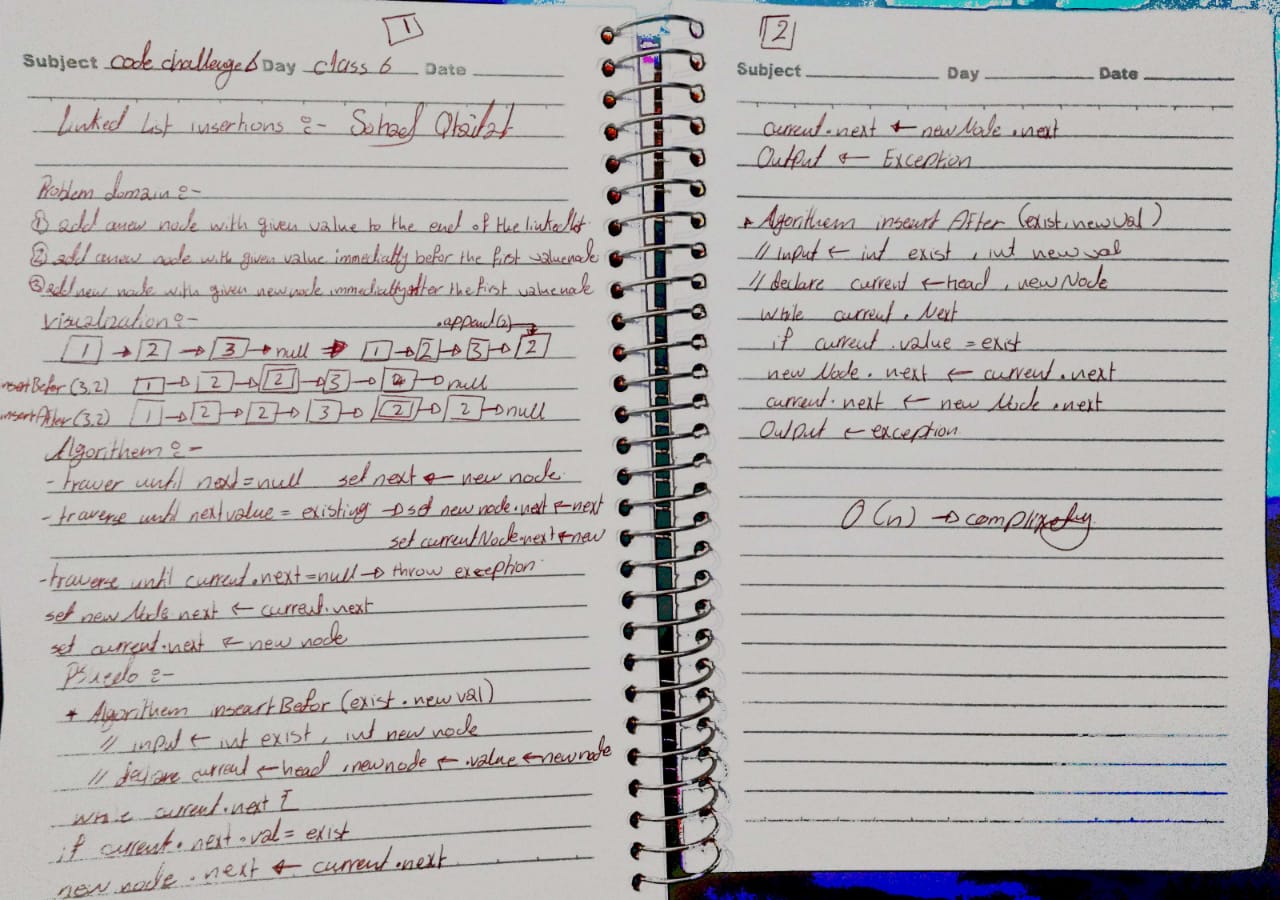 1
Subject code challenge 6 Day class 6 Date
Linked List insertions :-
Problem domain :-
① add anew node with given value to the end of the linked list.
② add anew node with given value immediatly befor the first value node
③ add new node with given new node immediatly after the first value node
Visualization :-
.append(2)
1 → 2 → 3 → null ⇒ 1 → 2 → 3 → 2
insertBefor (3,2) 1 → 2 → 2 → 3 → 2 → null
insertAfter (3,2) 1 → 2 → 2 → 3 → 2 → 2 → null
Algorithem :-
- traver until next = null set next ← new node.
- traverse until next value = existing → set new node.next ← next
set currentNode.next ← new
- traverse until current.next = null → throw exception.
set new Node next ← current.next
set current.next ← new node
Pseudo :-
* Algorithem inseartBefor (exist.new val)
// input ← int exist, int new node
// declare current ← head, newnode ← .value ← new node
while current.next
if current.next.val = exist
new node.next ← current.next
2
Subject Day Date
current.next ← new Node.next
Output ← Exception
* Agorithem inseart After (exist.new val)
// input ← int exist, int new val
// declare current ← head, newNode
while current.Next
if current.value = exist
new Node.next ← current.next
current.next ← new Node.next
Output ← exception
O(n) →